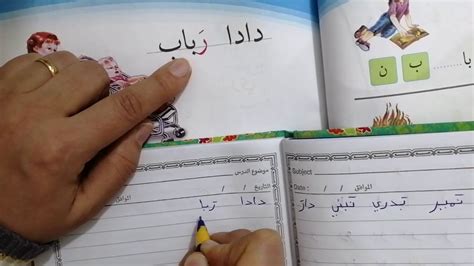 دادا رَباب
با...
ب ن
موضوع الدرس
التاريخ / / الموافق
دادا ربا
Subject
Date : / / الموافق
تمير تبدري تبني دار